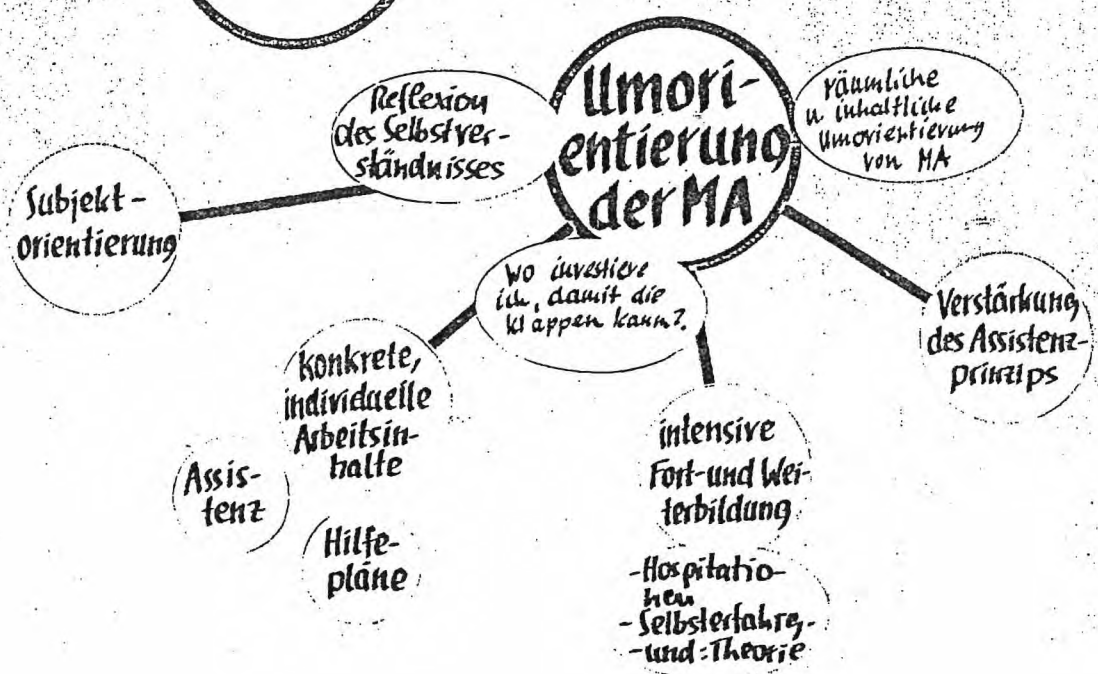 Umori-
entierung
der MA
Reflexion
des Selbstver-
ständnisses
räumliche
u. inhaltliche
Umorientierung
von MA
Subjekt-
orientierung
Wo investiere
ich, damit die
klappen kann?
Verstärkung
des Assistenz-
prinzips
konkrete,
individuelle
Arbeitsin-
halte
Assis-
tenz
Hilfe-
pläne
intensive
Fort- und Wei-
terbildung
-Hospitatio-
nen
-Selbsterfahrg.-
-und: Theorie